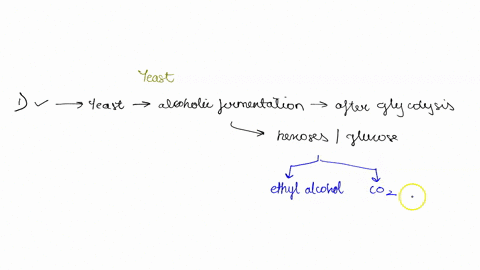 Yeast
1) ✓ → Yeast → alcoholic fermentation → after glycolysis
→ hexoses / glucose
ethyl alcohol CO2